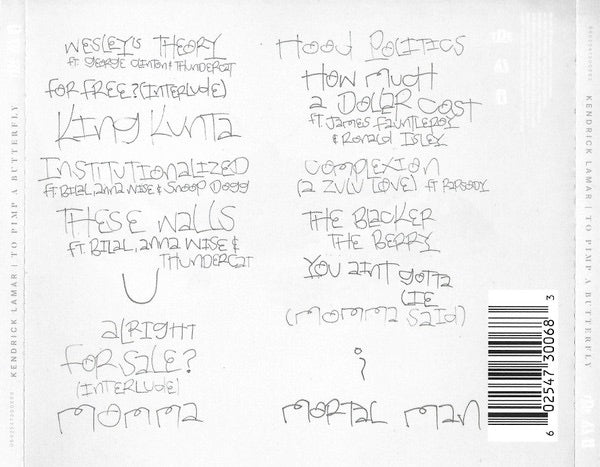 WESLEY'S THEORY
FT. GEORGE CLINTON & THUNDERCAT
FOR FREE? (INTERLUDE)
KING KUNTA
INSTITUTIONALIZED
FT. BILAL, ANNA WISE & SNOOP DOGG
THESE WALLS
FT. BILAL, ANNA WISE &
THUNDERCAT
U
ALRIGHT
FOR SALE?
(INTERLUDE)
MOMMA
HOOD POLITICS
HOW MUCH
A DOLLAR COST
FT. JAMES FAUNTLEROY
& RONALD ISLEY
COMPLEXION
(A ZULU LOVE) FT. RAPSODY
THE BLACKER
THE BERRY
YOU AINT GOTTA
LIE
(MOMMA SAID)
i
MORTAL MAN
6 02547 30068 3
KENDRICK LAMAR | TO PIMP A BUTTERFLY
KENDRICK LAMAR | TO PIMP A BUTTERFLY